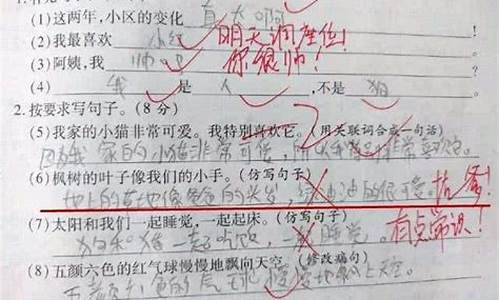 (1)这两年,小区的变化 真大啊
(2)我最喜欢 小红 明天调座位!
(3)阿姨,我 帅吧 你很帅!
(4) 我 是 人 ,不是 狗
2.按要求写句子。(8 分)
(5)我家的小猫非常可爱。我特别喜欢它。(用关联词合成一句话)
因为我家的小猫非常可爱,所以我非常喜欢它。
(6)枫树的叶子像我们的小手。(仿写句子)
地上的草地像爸爸的头发,绿油油的很可爱。
(7)太阳和我们一起睡觉,一起起床。(仿写句子)
狗和猪一起吃饭,一起睡觉。 有点常识!
(8)五颜六色的红气球慢慢地飘向天空。(修改病句)
五颜六色的气球慢慢地飘上天空。